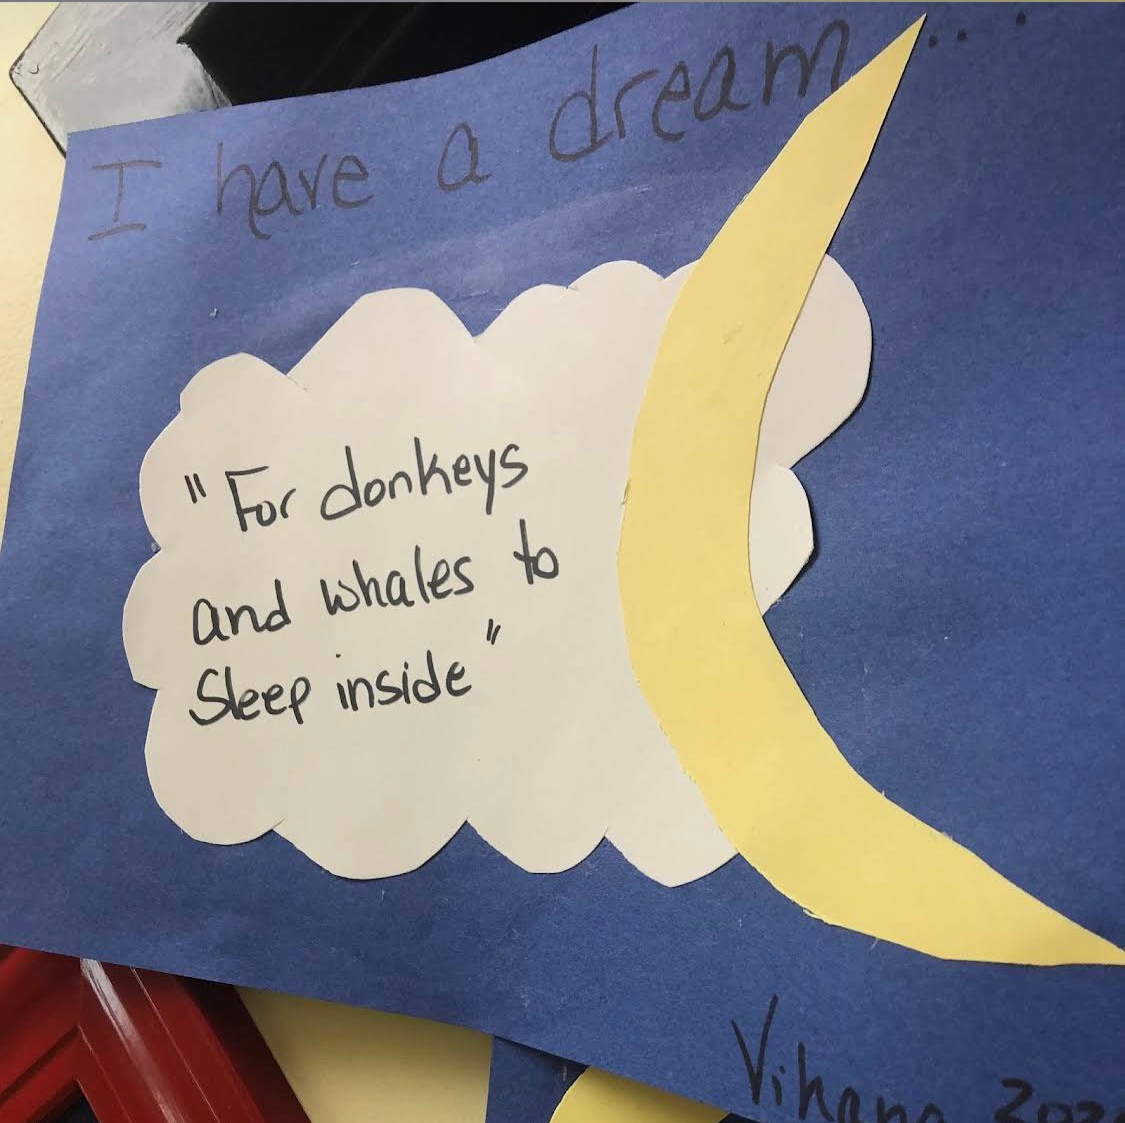 I have a dream...
"For donkeys
and whales to
Sleep inside"
Vihana